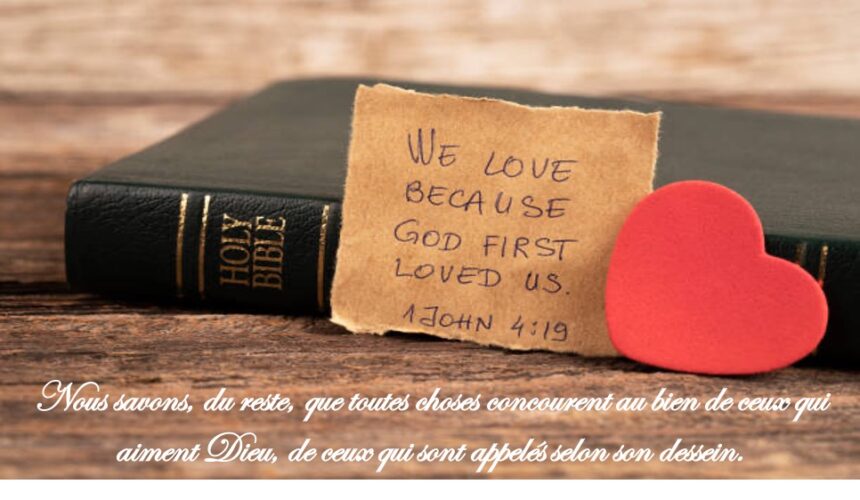 HOLY
BIBLE
WE LOVE
BECAUSE
GOD FIRST
LOVED US.
1 JOHN 4:19
Nous savons, du reste, que toutes choses concourent au bien de ceux qui
aiment Dieu, de ceux qui sont appelés selon son dessein.